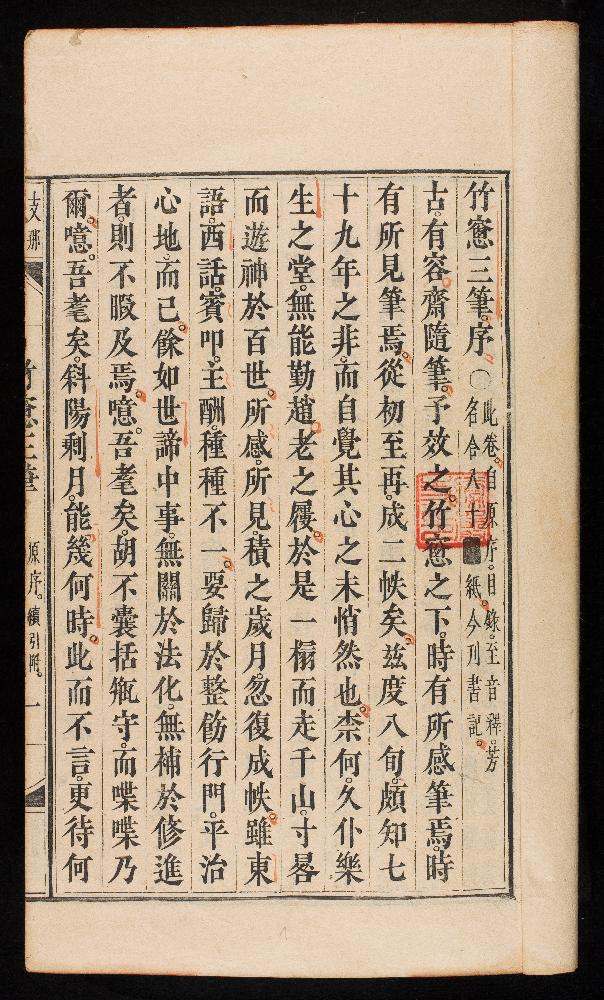 竹窻三筆序○此卷自原序目錄至音釋旁
名合八十 紙今刊書記
古有容齋隨筆予效之竹窻之下時有所感筆焉時
有所見筆焉從初至再成二帙矣玆度八旬頗知七
十九年之非而自覺其心之未悄然也柰何久仆樂
生之堂無能勤趙老之屨於是一榻而走千山寸晷
而遊神於百世所感所見積之歲月忽復成帙雖東
語西話賓叩主酬種種不一要歸於整飭行門平治
心地而已餘如世諦中事無關於法化無補於修進
者則不暇及焉噫吾耄矣胡不囊括甁守而喋喋乃
爾噫吾耄矣斜陽剩月能幾何時此而不言更待何
支那
竹窻三筆 原序 續引冊 一